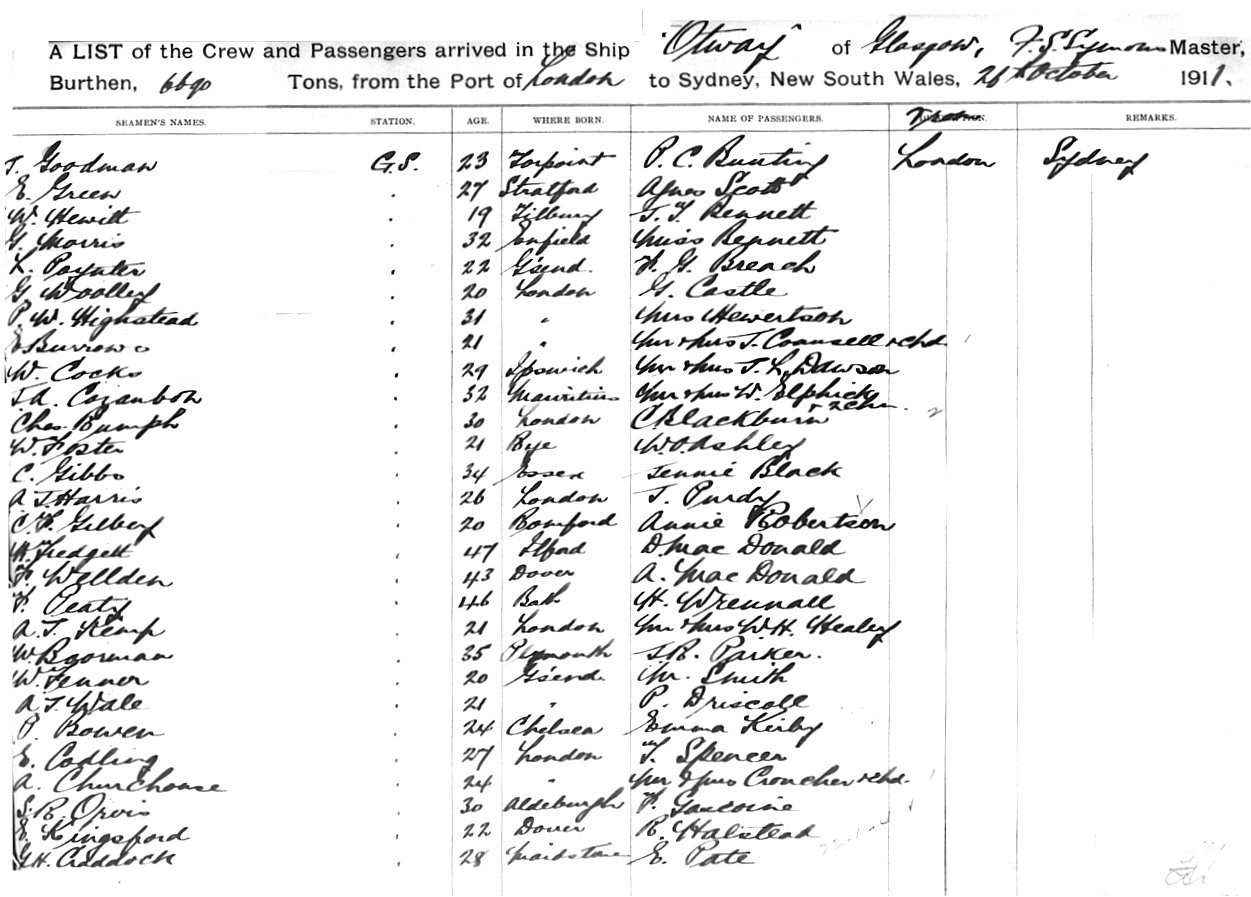 A LIST of the Crew and Passengers arrived in the Ship "Otway" of Glasgow, F.S. Symons Master,
Burthen, 6690 Tons, from the Port of London to Sydney, New South Wales, October 1911.
SEAMEN'S NAMES. STATION. AGE. WHERE BORN. NAME OF PASSENGERS. REMARKS.
T. Goodman G.S. 23 Torpoint P. C. Bunting London Sydney
E. Green . 27 Stratford Agnes Scott
W. Hewitt . 19 Tilbury J. T. Bennett
G. Morris . 32 Enfield Miss Bennett
K. Poynter . 22 G'send. H. G. Breach
G. Woolley . 20 London G. Castle
P. W. Highstead . 31 " Mrs Hewertson
E Burrows . 21 " Mr & Mrs J. Counsell & chd
W. Cocks . 29 Ipswich Mr & Mrs J. L. Dawson
J.A. Cazanbon . 32 Mauritius Mr & Mrs W. Elphick
& 2 chn.
Chas. Rumph . 30 London C. Blackburn
W. Foster . 21 Rye W.O. Ashley
C. Gibbs . 34 Essex Jennie Black
A J. Harris . 26 London J. Purdy
C. F. Gilbey . 20 Romford Annie Robertson
H. Fedgett . 47 Ilford D. Mac Donald
F. Wellden . 43 Dover A. Mac Donald
F. Peaty . 46 Bath H. Wrennall
A. T. Kemp . 21 London Mr & Mrs W.H. Healey
W. Boorman . 35 Plymouth J. R. Parker.
W. Fenner . 20 G'send. Mr. Smith
A. J. Wale . 21 " P. Driscoll
P. Bowen . 24 Chelsea Emma Kirby
E. Codling . 27 London T. Spencer
A. Churchouse . 24 " Mr & Mrs Croucher & chd.
S. R. Orvis . 30 Aldeburgh F. Gascoine
E. Kingsford . 22 Dover R. Halstead
G.H. Craddock . 28 Maidstone E. Pate